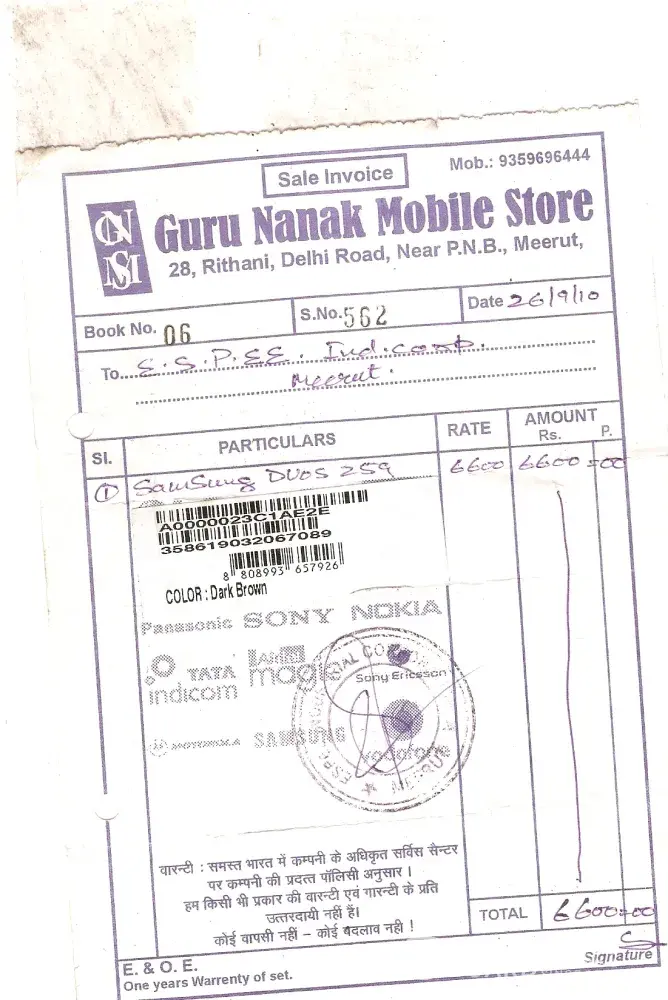 Sale Invoice
Mob.: 9359696444
GNMS
Guru Nanak Mobile Store
28, Rithani, Delhi Road, Near P.N.B., Meerut,
Book No. 06
S.No. 562
Date 26/9/10
To E.S.P.EE. Ind. Corp.
Meerut.
Sl. PARTICULARS RATE AMOUNT
Rs. P.
① Samsung DUOS 259 6600 6600=00
A0000023C1AE2E
358619032067089
8 808993 657926
COLOR : Dark Brown
Panasonic SONY NOKIA
TATA
indicom
magic
Sony Ericsson
MOTOROLA SAMSUNG
vodafone
INDUSTRIAL
MEERUT
वारन्टी : समस्त भारत में कम्पनी के अधिकृत सर्विस सैन्टर
पर कम्पनी की प्रदत्त पॉलिसी अनुसार ।
हम किसी भी प्रकार की वारन्टी एवं गारन्टी के प्रति
उत्तरदायी नहीं हैं।
कोई वापसी नहीं – कोई बदलाव नही !
TOTAL 6600=00
E. & O. E.
One years Warrenty of set.
Signature